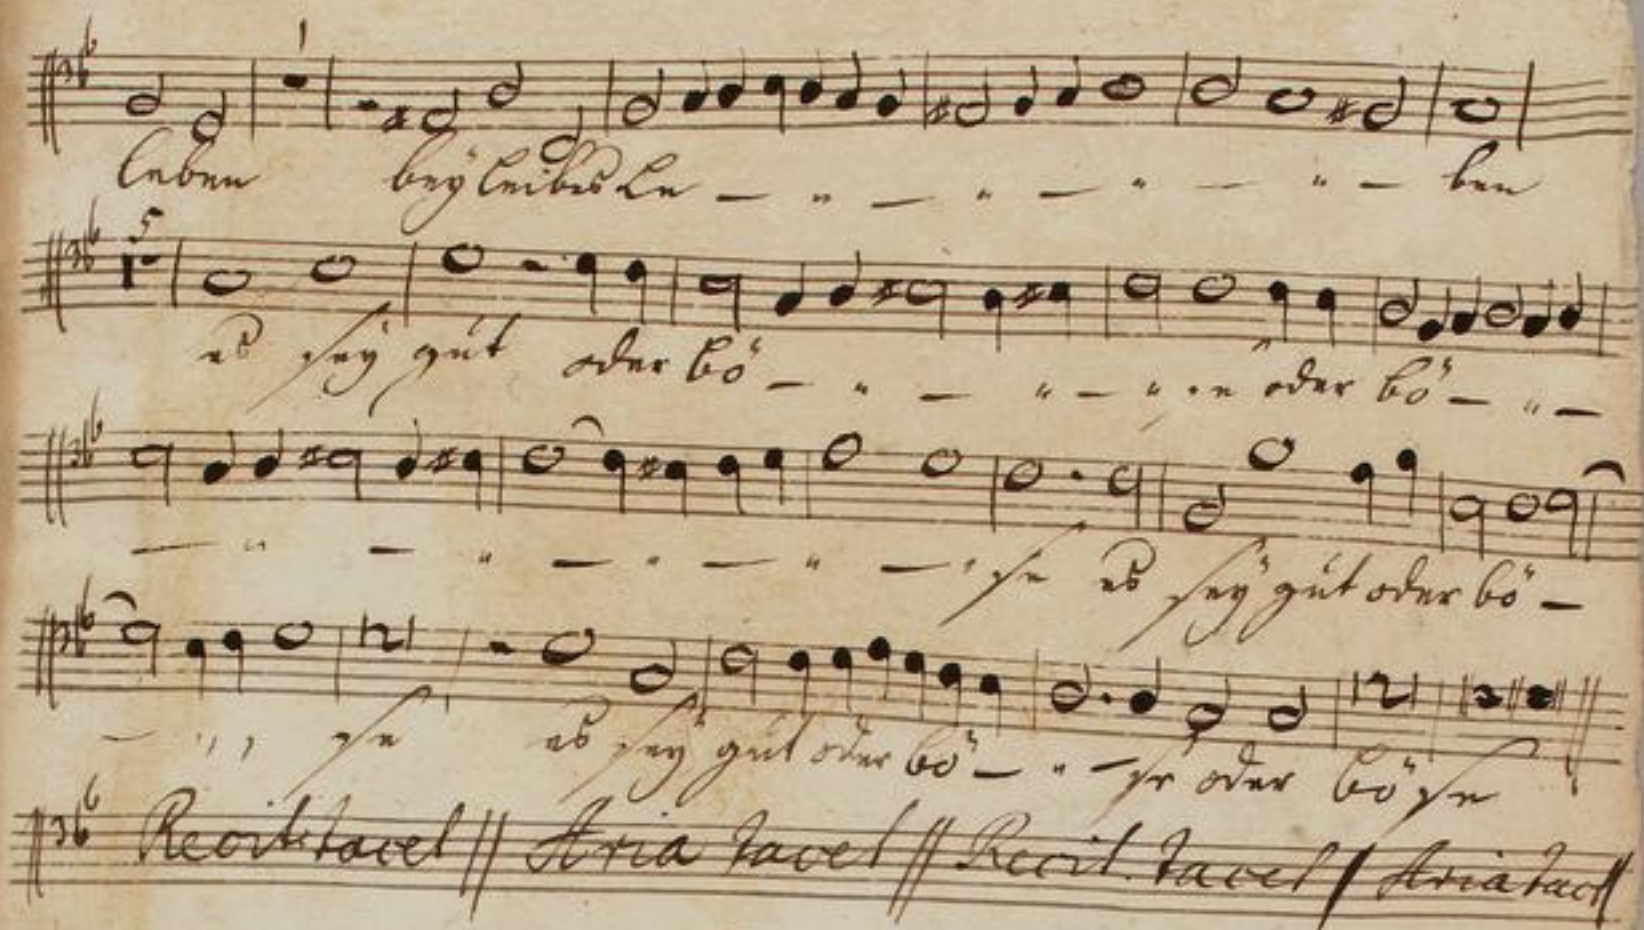 1
leben bey leibes Le - - - - - - - - - ben
5
es sey gut oder bö - - - - - - oder bö - - -
- - - - - - - - - - se es sey gut oder bö -
- - - se es sey gut oder bö - - - se oder böse
Recit: tacet || Aria tacet || Recit. tacet | Aria tacet